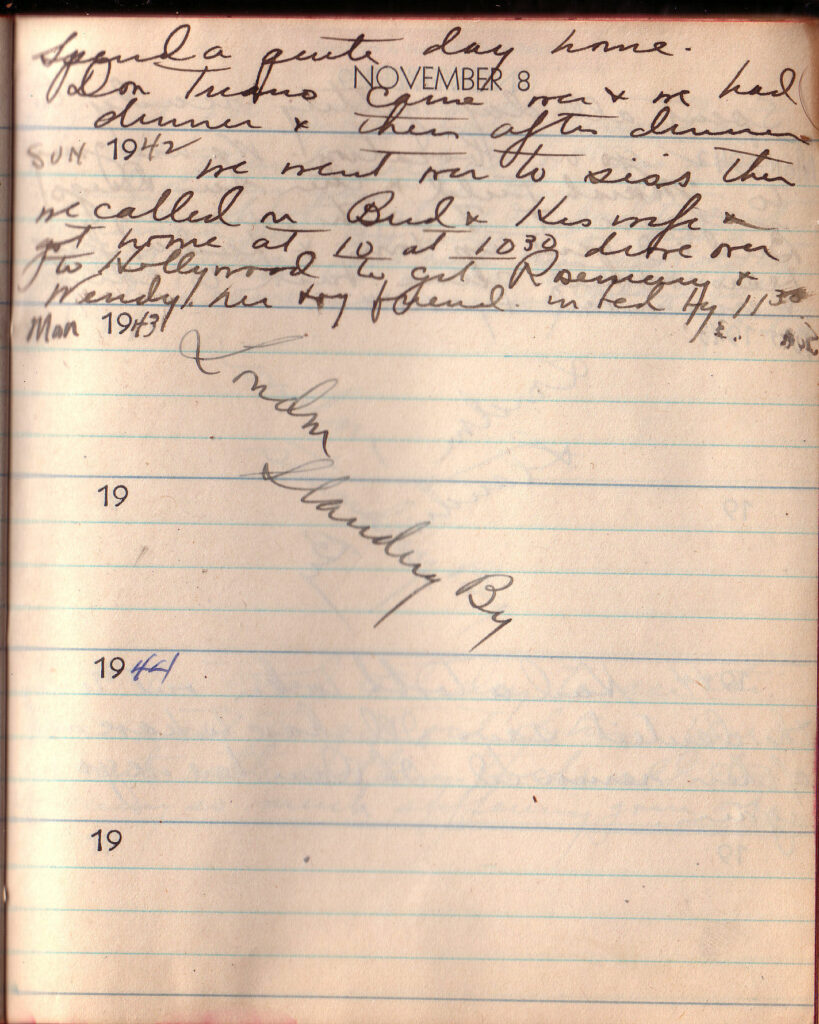 Spend a quite day home.
NOVEMBER 8
Don came over & we had
dinner & then after dinner
SUN 1942
we went over to siss then
we called on Bud & His wife &
got home at 10 at 10 30 drove over
to Hollywood to get Rosemary &
Wendy. her boy friend. in bed by 11 30
Mon 1943
London
Standing By
19
1944
19